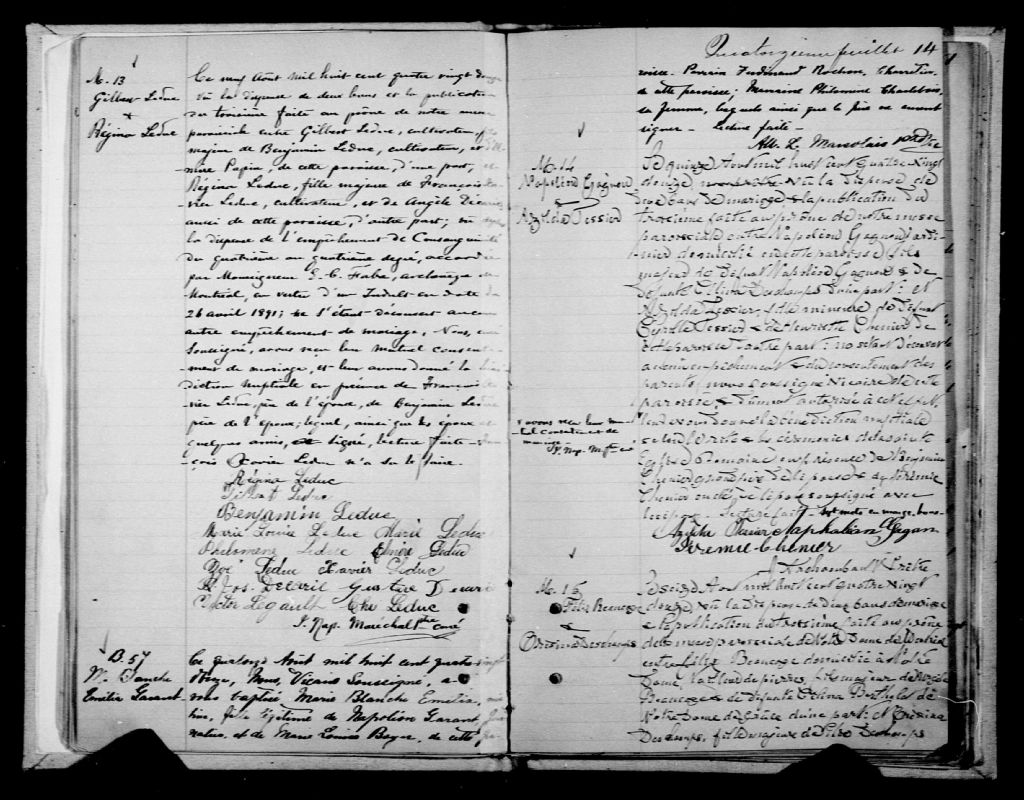 M. 13
Gilbert Leduc
+
Régina Leduc
Ce neuf Août mil huit cent quatre vingt douze
vu la dispense de deux bans et la publication
du troisième faite au prône de notre messe
paroissiale entre Gilbert Leduc, cultivateur, fils
majeur de Benjamin Leduc, cultivateur, et
Papin, de cette paroisse, d'une part, et
Régina Leduc, fille majeure de François
vier Leduc, cultivateur, et de Angèle
aussi de cette paroisse, d'autre part, vu
la dispense de l'empêchement de Consanguinité
du quatrième au quatrième degré, accordée
par Monseigneur E. C. Fabre, archevêque de
Montréal, en vertu d'un Indult en date du
26 avril 1891; ne s'étant découvert aucun
autre empêchement de mariage, Nous, curé
Soussigné, avons reçu leur mutuel consente-
ment de mariage, et leur avons donné la béné-
diction nuptiale en présence de François
vier Leduc père de l'épouse, de Benjamin Leduc
père de l'époux; lequel, ainsi que les époux et
quelques amis, signé, lecture faite.
çois Xavier Leduc n'a su le faire.
Régina Leduc
Gilbert Leduc
Benjamin Leduc
Marie Louise Leduc Marie Leduc
Philomène Leduc Leduc
Noé Leduc Xavier Leduc
Jos. Gustave
Victor Legault Leduc
J. Nap. Maréchal Ptre curé
B. 57
M. Blanche
Emélia Garant
Ce quatorze Août mil huit cent quatre vingt
douze, Nous, Vicaire Soussigné, a-
vons baptisé Marie Blanche Emélia,
fille légitime de Napoléon Garant,
et de Marie Louise Boyer, de cette pa-
Quatorzième feuillet 14
Parrain Ferdinand Rochon,
de cette paroisse; Marraine Philomène Charlebois,
sa femme, lesquels ainsi que le père ne savent
signer - Lecture faite -
Alb. L. Marsolais ptre
M. 14
Napoléon Gagnon
&
Azilda Tessier
Le quinze Août mil huit cent quatre vingt
douze, vu la dispense de
deux bans de mariage & la publication du
troisième faite au prône de notre messe
paroissiale entre Napoléon Gagnon
domicilié en cette paroisse fils
majeur de défunt Napoléon Gagnon & de
défunte Deschamps d'une part; et
Azilda Tessier, fille mineure de défunt
Tessier & de Henriette Chénier de
cette paroisse d'autre part; ne s'étant découvert
aucun empêchement & du consentement des
parents, nous soussigné vicaire de cette
paroisse, dûment autorisé à cet effet
leur avons donné la bénédiction nuptiale
selon les rites & les cérémonies de la sainte
Eglise Romaine en présence de Benjamin
Chénier de l'épouse & de Jérémie
Chénier oncle de l'épouse soussigné avec
Lecture faite. Sept mots en marge, bons.
x avons reçu leur mu-
tuel consentement de
mariage -
J. Nap. M. ptre curé
Azilda Tessier Naphalian Gagnon
Jérémie Chénier
J. Archambault Ptre
M. 15
Félix Beaucage
&
Orosina Deschamps
Le seize Août mil huit cent quatre vingt
douze, vu la dispense de deux bans de mariage
& la publication du troisième faite au prône
de la messe paroissiale de Notre Dame de
entre Félix Beaucage domicilié à Notre
Dame, tailleur de pierres, fils majeur de
Beaucage & de défunte Berthelet de
Notre Dame de Grâce d'une part: et Orosina
Deschamps, fille majeure de Deschamps